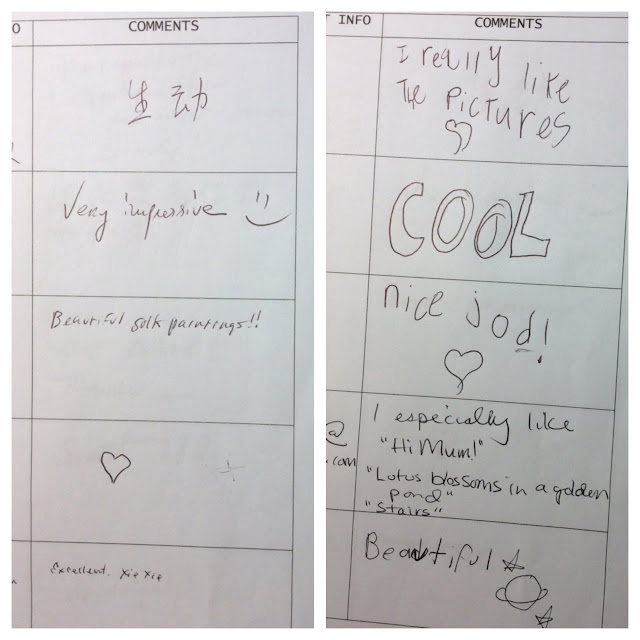 O
COMMENTS
生动
Very impressive
Beautiful silk paintings!!
Excellent. Xie Xie
T INFO
COMMENTS
I really like
The Pictures
COOL
nice jod!
I especially like
"Hi Mum!"
@
.com
"Lotus blossoms in a golden
pond"
"Stairs"
Beautiful